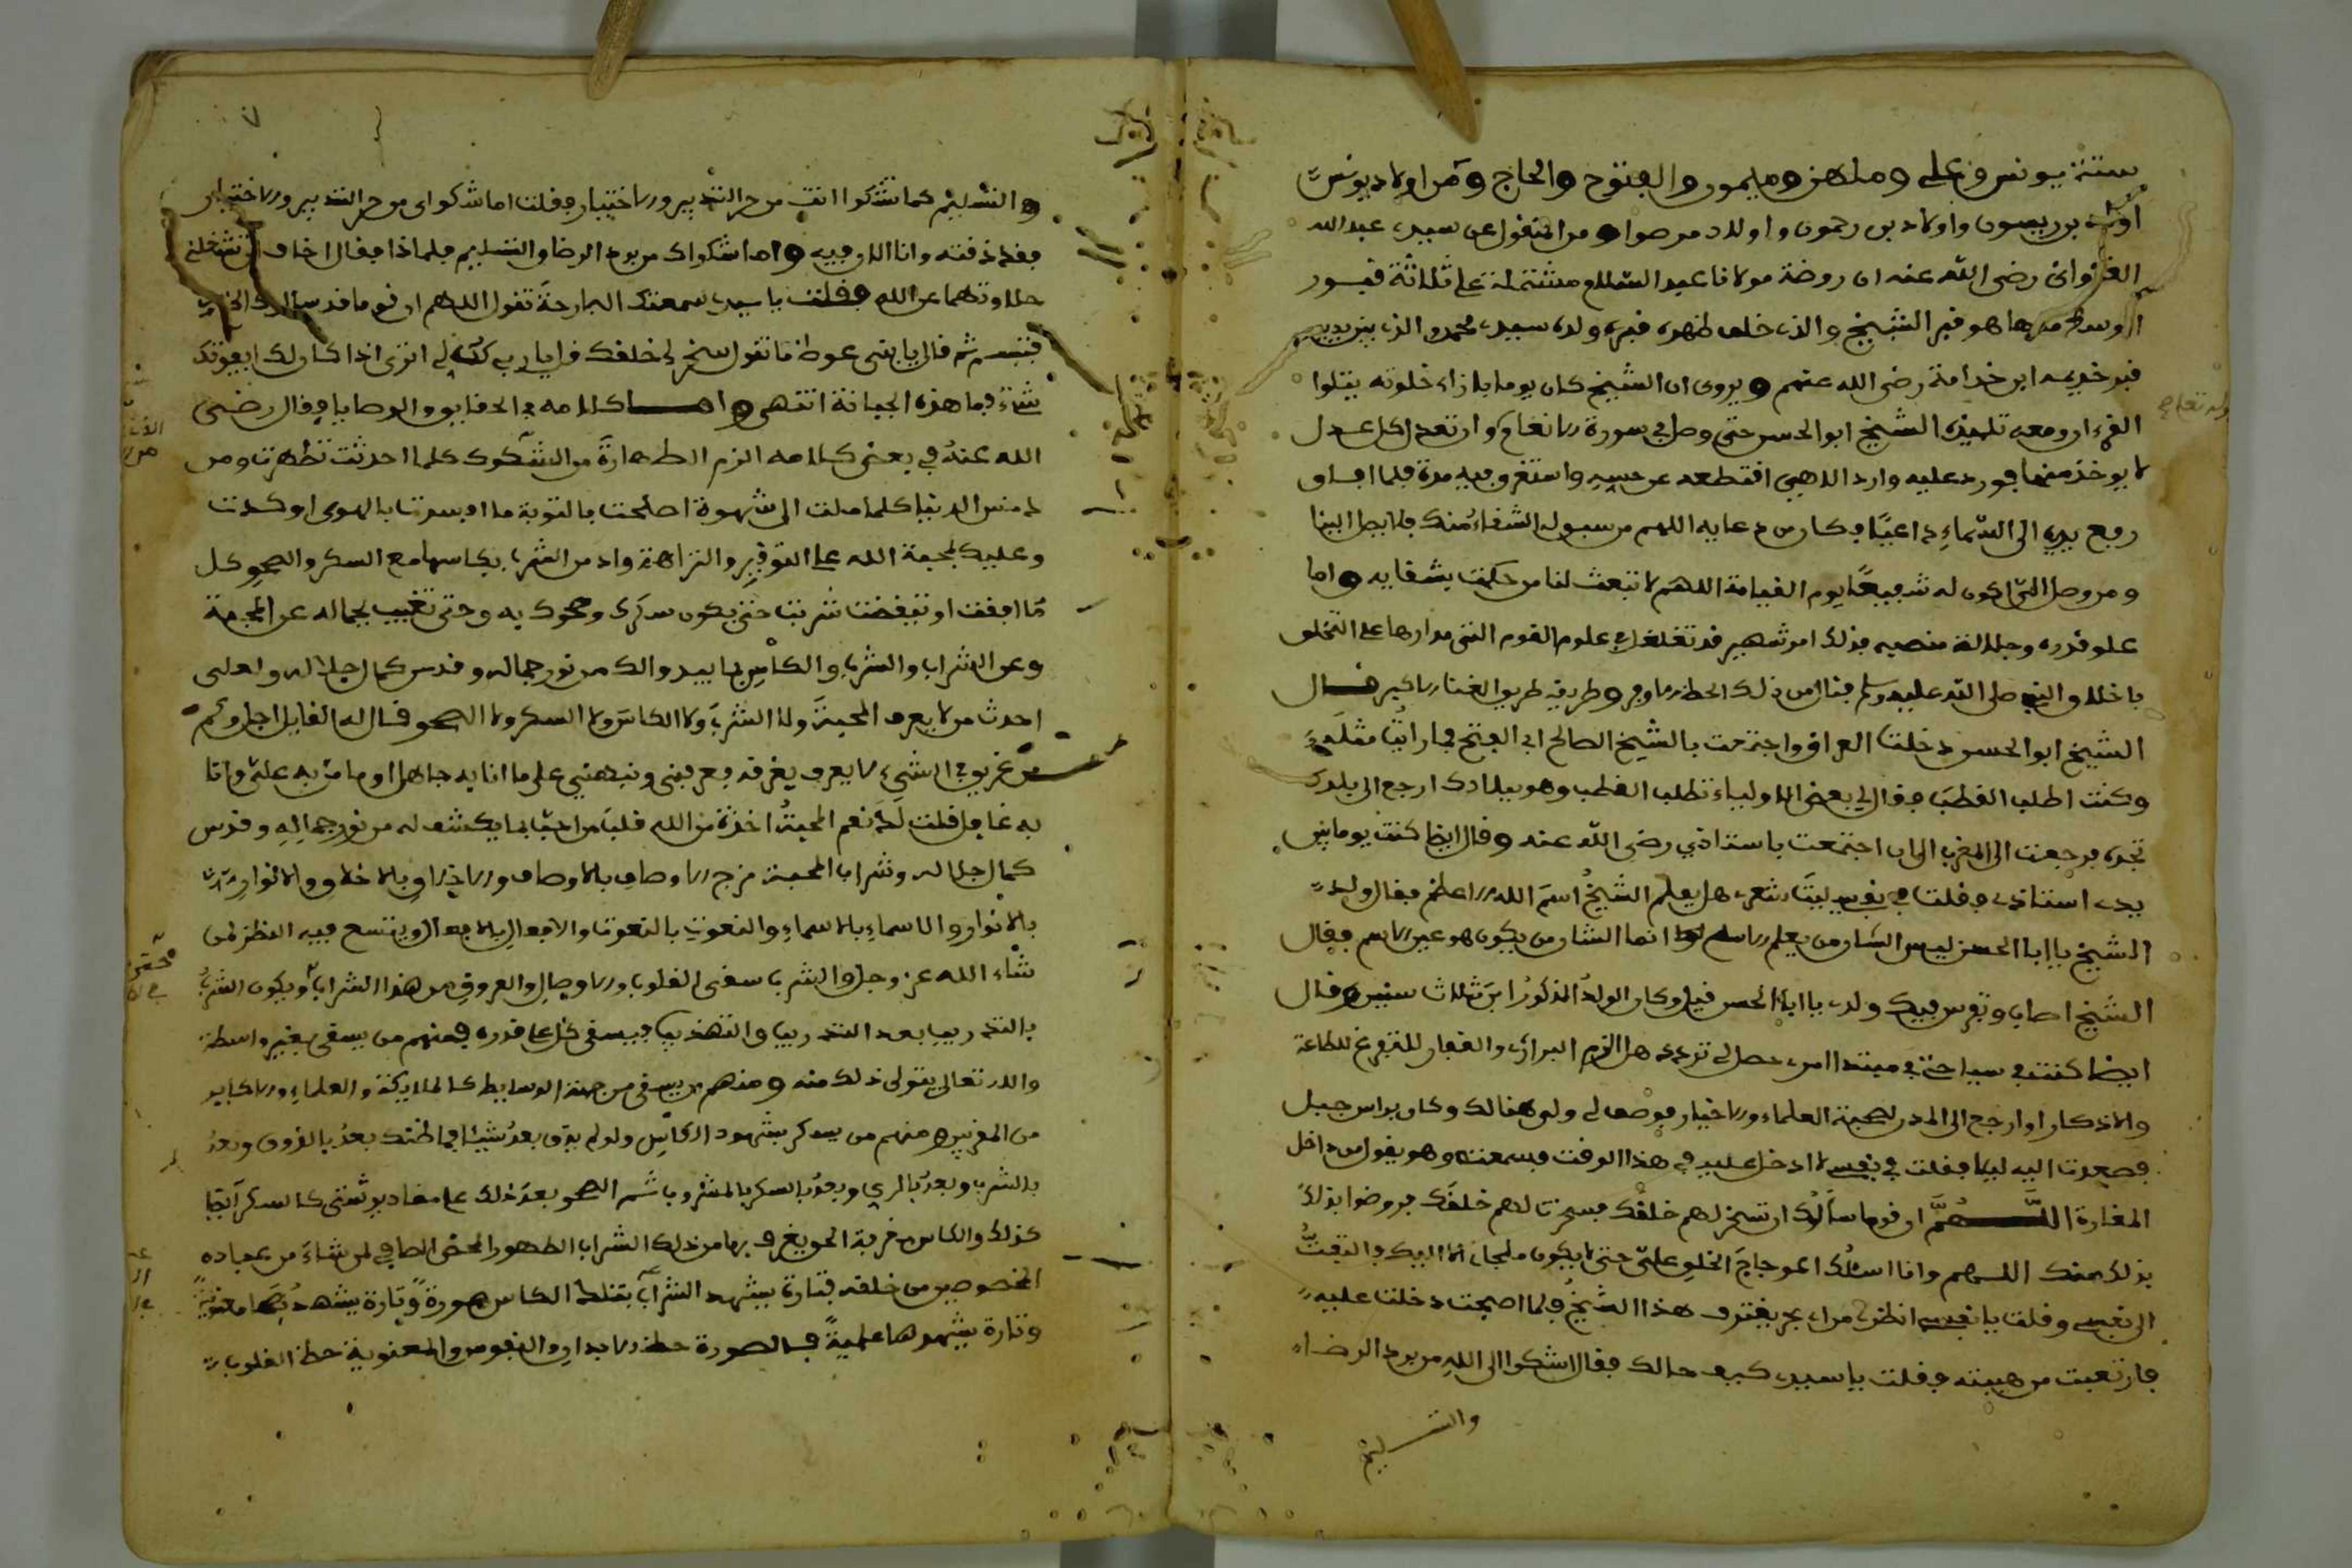 ستة يونس وعلي وملاهز وميمون والفتوح والحاج ومن اولاد يونس
اولاد بن ريسون واولاد بن رحمون واولاد مرصوا ومن المنقول عن سيدى عبد الله
الغزوانى رضى الله عنه ان روضة مولانا عبد السلام مشتملة على ثلاثة قبور
الوسط منها هو قبر الشيخ والذى خلف ظهره قبره ولده سيدى محمد والذى بين يديه
قبر خديمه ابن خدامة رضى الله عنهم ويروى ان الشيخ كان يوما بازاء خلوته يتلوا
القرءان ومعه تلميذه الشيخ ابو الحسن حتى وصل في سورة الانعام وان تعدل كل عدل
لا يوخذ منها فورد عليه وارد الاهي اقتطعه عن حسه واستغرق فيه مدة فلما افاق
رفع يديه الى السماء داعيا فكان من دعايه اللهم من سبق له الشقاء منك فلا يصل الينا
ومن وصل الي اكون له شفيعا يوم القيامة اللهم لا تبعث لنا من حكمت بشقايه واما
علو قدره وجلالة منصبه فذلك امر شهير قد تغلغل في علوم القوم التي مدارها على التخلق
باخلاق النبي صلى الله عليه وسلم فنال من ذلك الحظ الاوفر وطريقه طريق الغنا الاكبر قال
الشيخ ابو الحسن دخلت العراق واجتمعت بالشيخ الصالح ابي الفتح فما رايت مثله
وكنت اطلب القطب فقال لي بعض الاولياء تطلب القطب وهو ببلادك ارجع الى بلدك
تجده فرجعت الى المغرب الى ان اجتمعت باستاذي رضى الله عنه وقال ايضا كنت يوما بين
يدى استاذى فقلت في نفسي ليت شعرى هل يعلم الشيخ اسم الله الاعظم فقال ولد
الشيخ يا ابا الحسن ليس الشان من يعلم الاسم انما الشان من يكون هو عين الاسم فقال
الشيخ اصاب وتفرس فيك ولدى يا ابا الحسن قيل وكان الولد المذكور ابن ثلاث سنين وقال
ايضا كنت في سياحتي في مبتدا امرى حصل لي تردد هل الزم البرارى والقفار للتفرغ للطاعة
والاذكار او ارجع الى المدن لصحبة العلماء والاخيار فوصف لي ولي هنالك وكان براس جبل
فصعدت اليه ليلا فقلت في نفسي لا ادخل عليه في هذا الوقت فسمعته وهو يقول من داخل
المغارة اللهم ان قوما سالوك ان تسخر لهم خلقك فسخرت لهم خلقك فرضوا بذلك
بذلك منك اللهم وانا اسئلك اعوجاج الخلق علي حتى لا يكون ملجاى الا اليك فالتفت
الى نفسي وقلت يا نفسي انظرى من اى بحر يغترف هذا الشيخ فلما اصبحت دخلت عليه
فارتعبت من هيبته فقلت يا سيدى كيف حالك فقال اشكوا الى الله من برد الرضاء
والتسليم
والتسليم كما تشكوا انت من حر التدبير والاختيار فقلت اما شكواى من حر التدبير والاختيار
فقد ذقته وانا الان فيه واما شكواك من برد الرضا والتسليم فلماذا فقال اخاف ان تشغلني
حلاوتهما عن الله فقلت يا سيدى سمعتك البارحة تقول اللهم ان قوما قد سالوك الخ
فتبسم ثم قال يا بني عوض ما تقول سخر لي خلقك قل يا رب كن لي اترى اذا كان لك ايفوتك
شئ فما هذه الجبانة انتهى واما كلامه في الحقايق والوصايا فقال رضى
الله عنه في بعض كلامه الزم الطهارة من الشكوك كلما احدثت تطهرت ومن
دنس الدنيا كلما ملت الى شهوة اصلحت بالتوبة ما افسدت بالهوى او كدت
وعليك بمحبة الله على التوقير والنزاهة وادمن الشرب بكاسها مع السكر والصحو كل
ما افقت او تيقضت شربت حتى يكون سكرك وصحوك به وحتى تغيب بجماله عن المحبة
وعن الشراب والشرب والكاس بما يبدو لك من نور جماله وقدس كمال جلاله ولعلى
احدث من لا يعرف المحبة ولا الشرب ولا الكاس ولا السكر ولا الصحو قال له القايل اجل وكم
من غريق في الشيء لا يعرف بغرقه فعرفنى ونبهني على ما انا به جاهل او ما من به علي وانا
به غافل قلت له نعم المحبة اخذة من الله قلب من احب بما يكشف له من نور جماله وقدس
كمال جلاله وشراب المحبة مزج الاوصاف بالاوصاف والاخلاق بالاخلاق والانوار
بالانوار والاسماء بالاسماء والنعوت بالنعوت والافعال بالافعال ويتسع فيه النظر لمن
شاء الله عز وجل والشرب سقى القلوب والاوصال والعروق من هذا الشراب ويكون الشرب
بالتدريب بعد التدريب والتهذيب فيسقى كل على قدره فمنهم من يسقى بغير واسطة
والله تعالى يتولى ذلك منه ومنهم من يسقى من جهة الوسايط كالملايكة والعلماء والاكابر
من المقربين ومنهم من يسكر بشهود الكاس ولو لم يذق بعد شيئا فما ظنك بعد بالذوق وبعد
بالشرب وبعد بالري وبعد بالسكر بالمشروب ثم الصحو بعد ذلك على مقادير شتى كما السكر ايضا
كذلك والكاس مغرفة الحق يغرف بها من ذلك الشراب الطهور المحض الصافي لمن شاء من عباده
المخصوصين من خلقه فتارة يشهد الشراب بتلك الكاس صورة وتارة يشهدها معنوية
وتارة يشهدها علمية فالصورة حظ الابدان والنفوس والمعنوية حظ القلوب